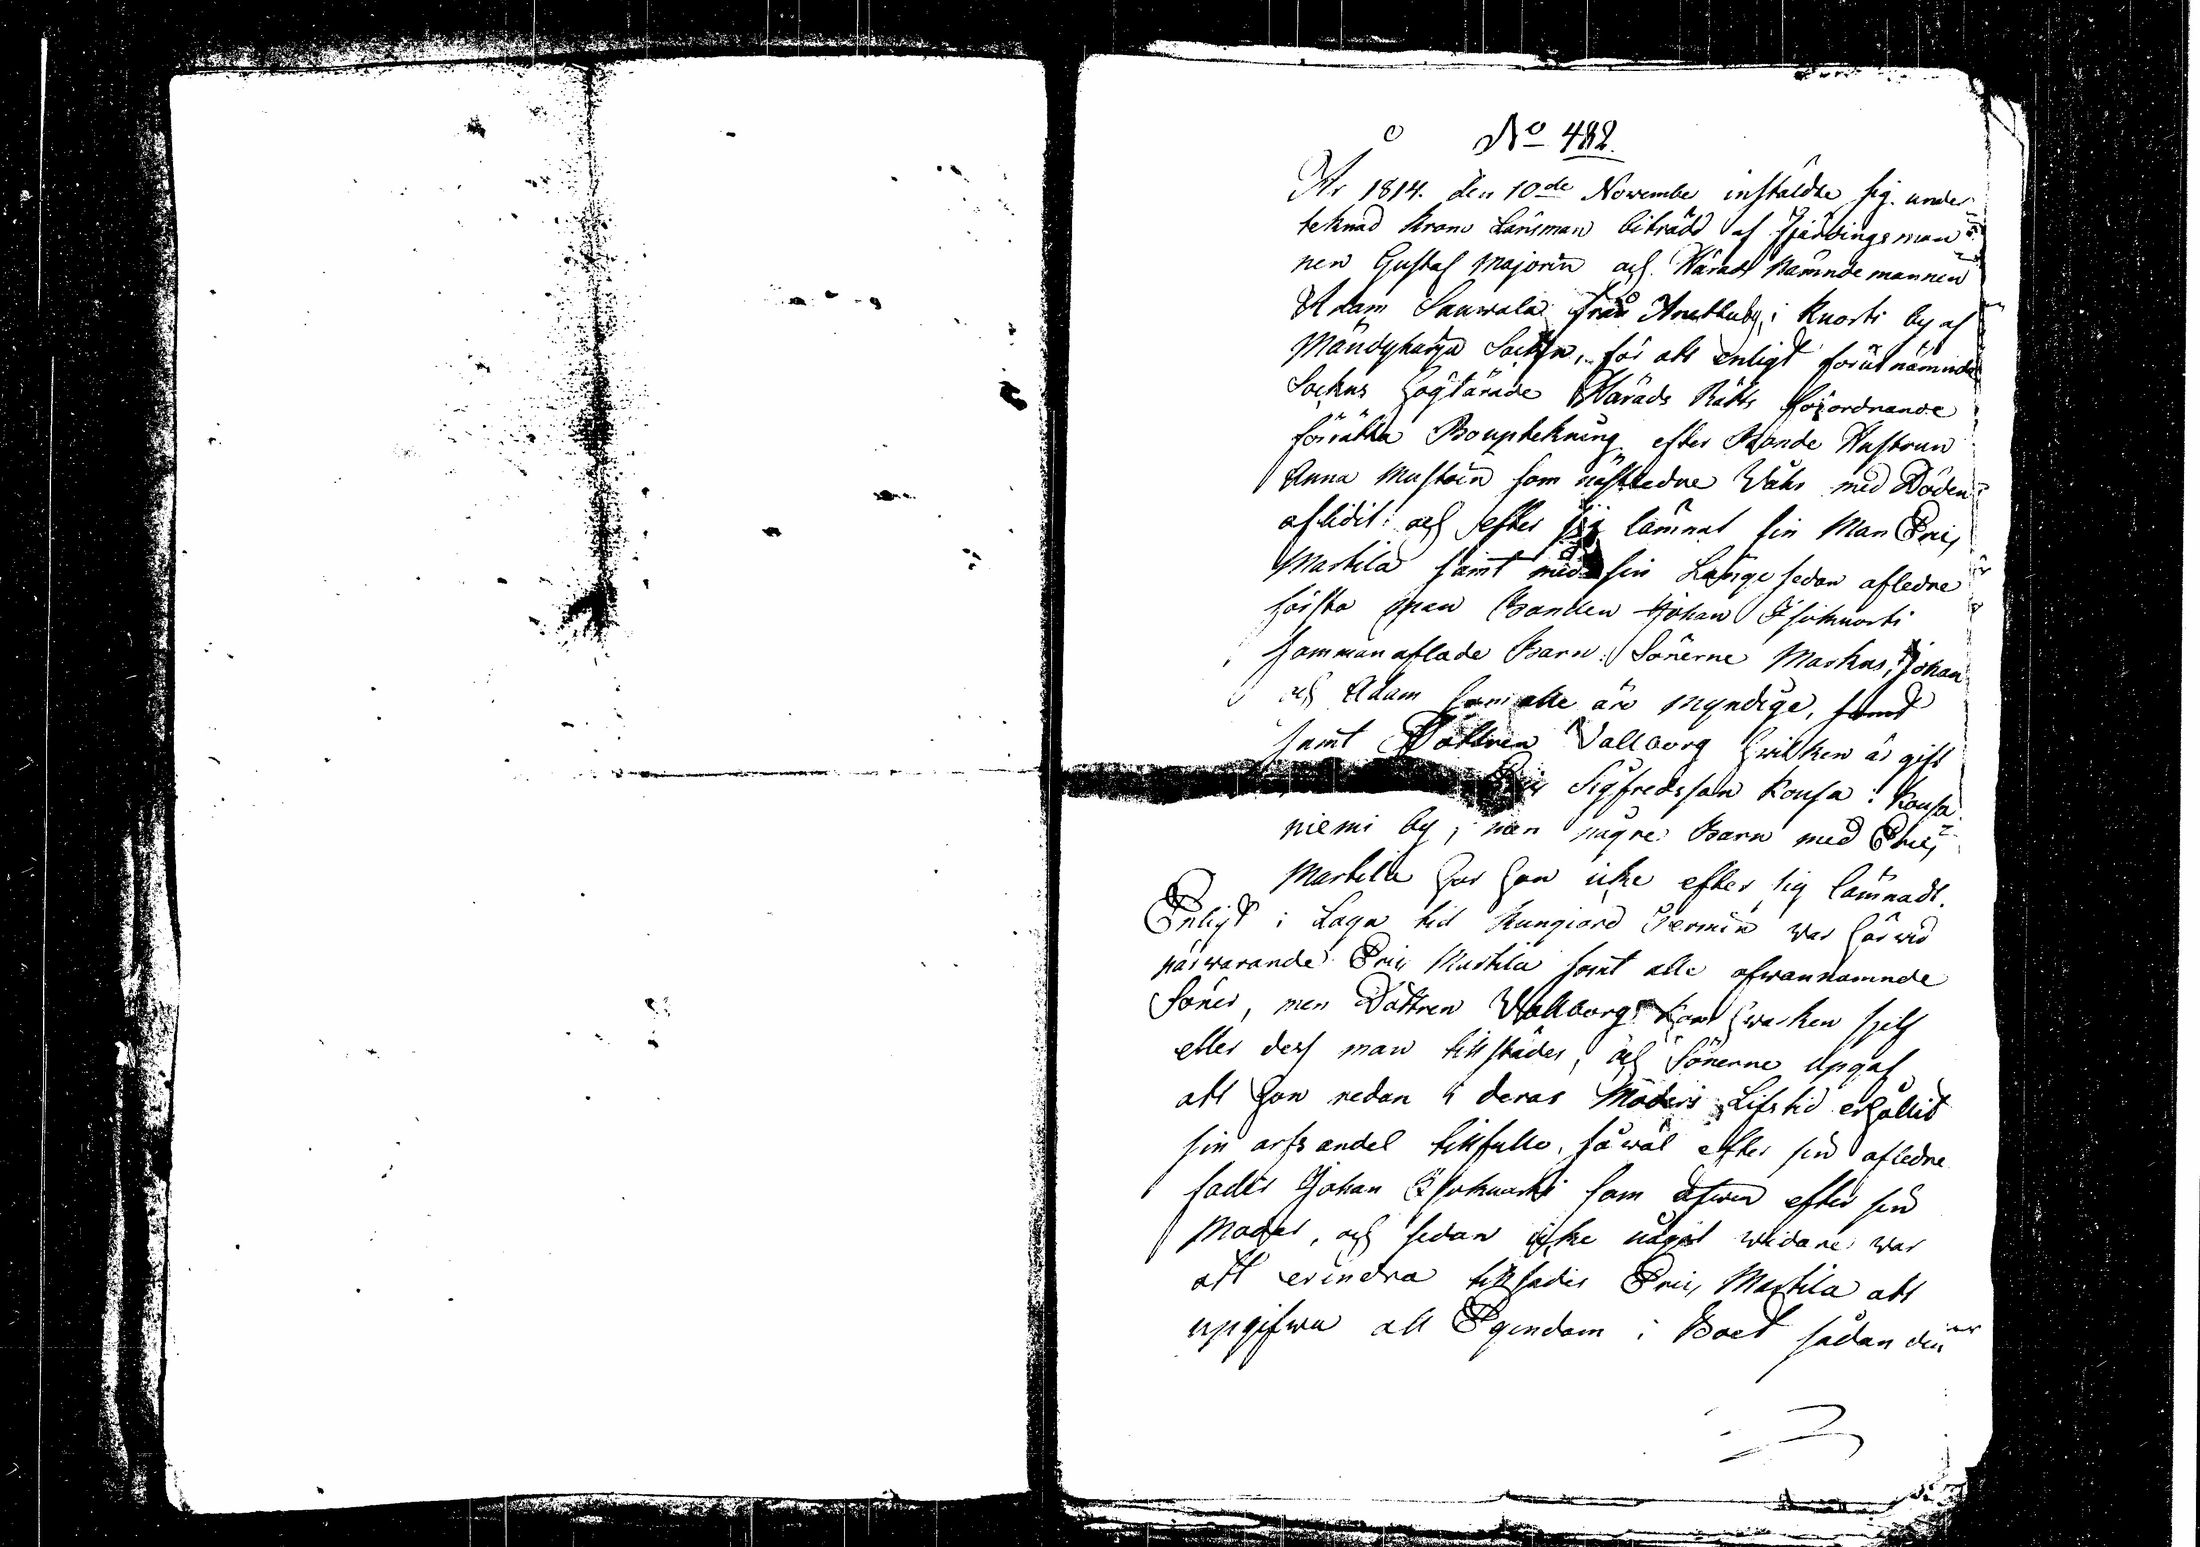 No 482.
År 1814. den 10de Novembr instäldte sig under
teknad Krono Länsman biträdd af Fjärdingsman
nen Gustaf Majorin och Härads Nämndemannen
Adam Sauwala från Anettuby, i Kuorti by af
Mändyharju Sochn, för att enligt förutnämnde
Sochns Högtärade Härads Rätts förordnande
förrätta Bouptekning efter Bonde Hustrun
Anna Mustoin som nästledne Wåhr med Döden
aflidit: och efter sig lämnat sin Man Eric
Markila samt med sin Länge sedan afledne
första Man Bonden Johan Isokuorti
sammanaflade Barn: Sönerne Markus, Johan
och Adam som alle äro myndige, samt
samt Dottren Vallborg hwilken är gift
Eric Sigfredsson Kousa i Kousa
niemi by; men några Barn med Eric
Markila har hon icke efter sig lämnadt.
Enligt i Laga tid Kungiord Termin war härwid
närwarande Eric Markila samt alle ofwannämnde
Söner, men Dottren Wallborg kom hwarken sjelf
eller dess man tillstädes, och Sönerne upgaf
att hon redan i deras Moders Lifstid erhållit
sin arfs andel tillfullo, såwäl efter sin afledne
fader Johan Isokuorti som äfwen efter sin
Moder, och sedan icke något widare war
att erindra tillsades Eric Markila att
upgifwa all Egendom i Boet sådan den